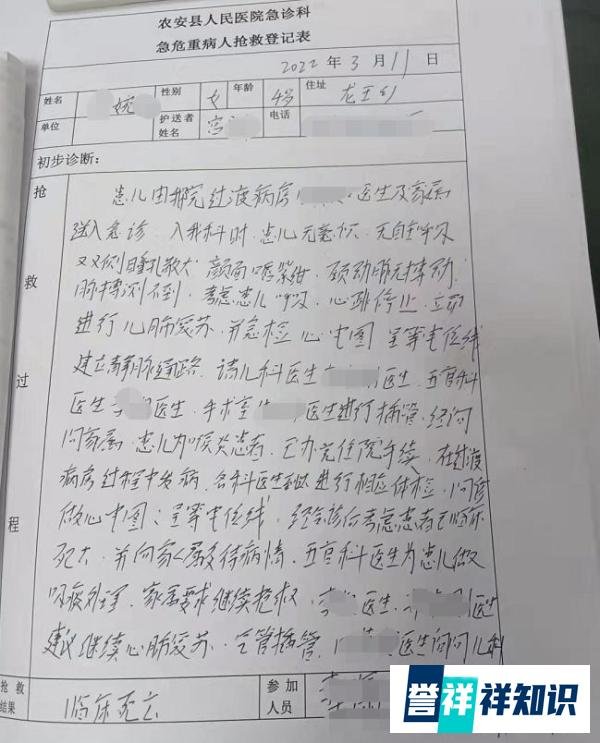 农安县人民医院急诊科
急危重病人抢救登记表
2022 年 3 月 11 日
姓名 婉 性别 女 年龄 4岁 住址 龙王乡
单位 护送者姓名 宫 电话
初步诊断:
抢救过程
患儿由我院过渡病房 医生及家属
送入急诊,入我科时,患儿无意识,无自主呼吸
双侧瞳孔散大,颜面唇紫绀,颈动脉无搏动,
脉搏测不到,考虑患儿呼吸,心跳停止,立即
进行心肺复苏,并急检心电图呈等电位线
建立静脉通路,请儿科医生 医生,五官科
医生 医生,手术室 医生进行插管,经询
问家属,患儿为喉炎患者,已办完住院手续,在过渡
病房过程中发病,各科医生到达进行相应体检,
做心电图:呈等电位线,经会诊后考虑患者已临床
死亡,并向家属交待病情,五官科医生为患儿做
吸痰处理,家属要求继续抢救,李 医生,
建议继续心肺复苏,气管插管, 医生询问儿科
抢救结果 临床死亡 参加人员
誉祥祥知识